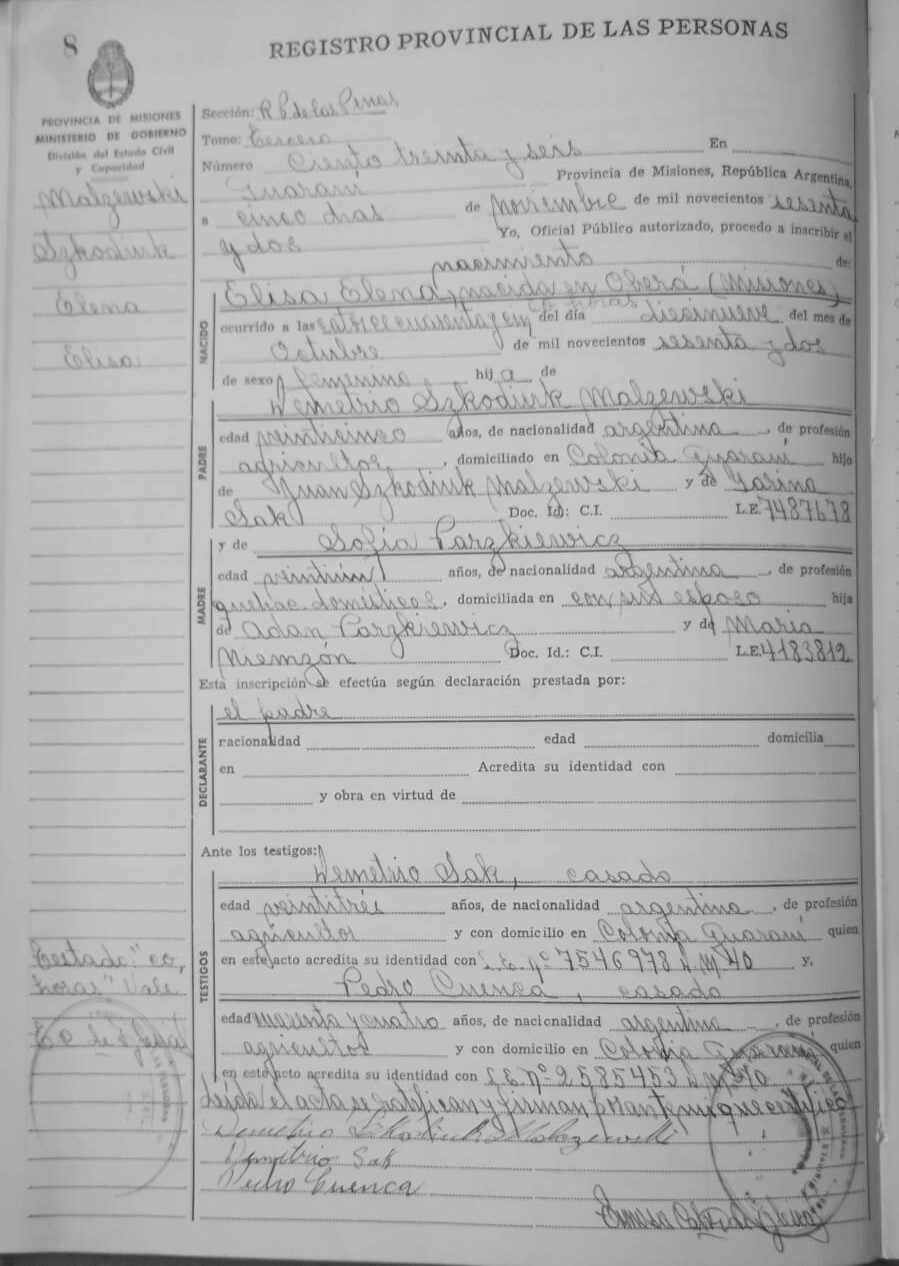 8
REGISTRO PROVINCIAL DE LAS PERSONAS
PROVINCIA DE MISIONES
MINISTERIO DE GOBIERNO
División del Estado Civil
y Capacidad
Malzewski
Szkodiuk
Elena
Elisa
Sección: R. P. de las Penas
Tomo: Tercero
Número Ciento treinta y seis En
Guaraní Provincia de Misiones, República Argentina,
a cinco días de noviembre de mil novecientos sesenta
y dos Yo, Oficial Público autorizado, procedo a inscribir el
nacimiento de:
NACIDO
Elisa Elena, nacida en Oberá (Misiones)
horas
ocurrido a las catorce cuarenta y cinco del día diecinueve del mes de
Octubre de mil novecientos sesenta y dos
de sexo femenino hija de
PADRE
Demetrio Szkodiuk Malzewski
edad veinticinco años, de nacionalidad argentina, de profesión
agricultor, domiciliado en Colonia Guaraní hijo
de Juan Szkodiuk Malzewski y de Jarina
Sak Doc. Id: C.I. L.E. 7487678
MADRE
y de Sofía Parzkiewicz
edad veintiún años, de nacionalidad argentina, de profesión
quehac. domésticos, domiciliada en con su esposo hija
de Adan Parzkiewicz y de María
Niemzón Doc. Id.: C.I. L.E. 4183812
Esta inscripción se efectúa según declaración prestada por:
DECLARANTE
el padre
nacionalidad edad domicilia
en Acredita su identidad con
y obra en virtud de
Ante los testigos:
TESTIGOS
Demetrio Sak, casado
edad veintitrés años, de nacionalidad argentina, de profesión
agricultor y con domicilio en Colonia Guaraní quien
en este acto acredita su identidad con L.E. nº 7546978 D.M. 40 y,
Pedro Cuenca, casado
edad cuarenta y cuatro años, de nacionalidad argentina, de profesión
agricultor y con domicilio en Colonia Guaraní quien
en este acto acredita su identidad con L.E. nº 2585453 D.M. 40
Leída el acta se ratifican y firman por ante mi que certifico
Demetrio Szkodiuk Malzewski
Demetrio Sak
Pedro Cuenca
Testado: "co,
horas" Vale